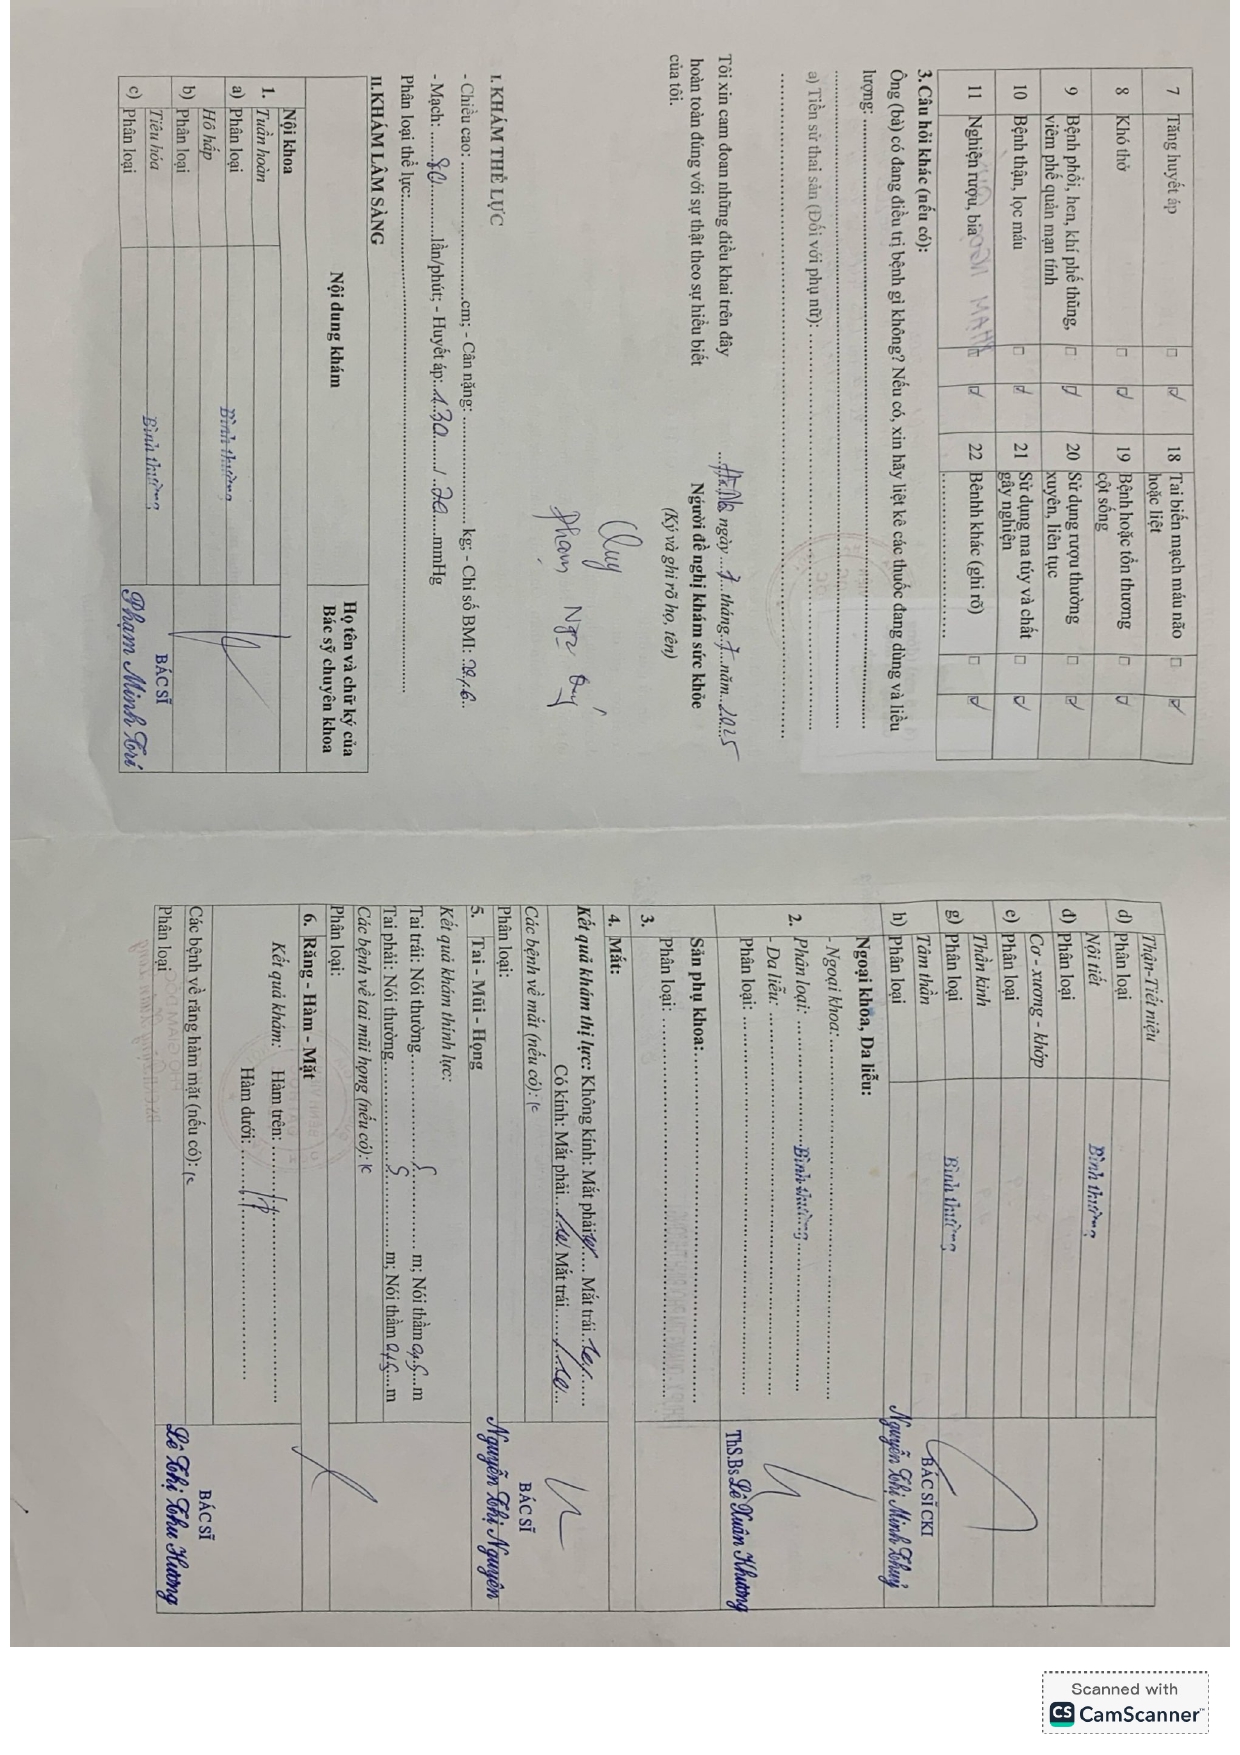 7 Tăng huyết áp □ ☑ 18 Tai biến mạch máu não hoặc liệt □ ☑
8 Khó thở □ ☑ 19 Bệnh hoặc tổn thương cột sống □ ☑
9 Bệnh phổi, hen, khí phế thũng, viêm phế quản mạn tính □ ☑ 20 Sử dụng rượu thường xuyên, liên tục □ ☑
10 Bệnh thận, lọc máu □ ☑ 21 Sử dụng ma túy và chất gây nghiện □ ☑
11 Nghiện rượu, bia □ ☑ 22 Bênhh khác (ghi rõ) .................. □ ☑
3.Câu hỏi khác (nếu có):
Ông (bà) có đang điều trị bệnh gì không? Nếu có, xin hãy liệt kê các thuốc đang dùng và liều
lượng: ..................
a) Tiền sử thai sản (Đối với phụ nữ): ..................
Tôi xin cam đoan những điều khai trên đây
hoàn toàn đúng với sự thật theo sự hiểu biết
của tôi.
ngày ...7...tháng..7...năm..2025
Người đề nghị khám sức khỏe
(Ký và ghi rõ họ, tên)
Quy
Phạm Ngọc Quý
I. KHÁM THỂ LỰC
- Chiều cao: ..................cm; - Cân nặng: .................. kg; - Chỉ số BMI:
- Mạch: ......80..........lần/phút; - Huyết áp:..130....../ ..70....mmHg
Phân loại thể lực:..................
II.KHÁM LÂM SÀNG
Nội dung khám
Họ tên và chữ ký của
Bác sỹ chuyên khoa
Nội khoa
1. Tuần hoàn
a) Phân loại Bình thường
Hô hấp
b) Phân loại
Tiêu hóa Bình thường
c) Phân loại
BÁC SĨ
Phạm Minh Trí
Thận-Tiết niệu
d) Phân loại
Nội tiết Bình thường
đ) Phân loại
Cơ - xương - khớp
e) Phân loại
Thần kinh
g) Phân loại Bình thường
Tâm thần
h) Phân loại
BÁC SĨ CKI
Nguyễn Thị Minh Thuý
Ngoại khoa, Da liễu:
- Ngoại khoa:..................
2. Phân loại: ..................Bình thường..................
- Da liễu: ..................
Phân loại: ..................
ThS.Bs Lê Xuân Khương
Sản phụ khoa:..................
3. Phân loại: ..................
4. Mắt:
Kết quả khám thị lực: Không kính: Mắt phải..... Mắt trái.....
Có kính: Mắt phải..... Mắt trái.....
Các bệnh về mắt (nếu có): K
Phân loại:
BÁC SĨ
Nguyễn Thị Nguyên
5. Tai - Mũi - Họng
Kết quả khám thính lực:
Tai trái: Nói thường........5........ m; Nói thầm 0,5...m
Tai phải: Nói thường........5........ m; Nói thầm 0,5...m
Các bệnh về tai mũi họng (nếu có): K
Phân loại:
6. Răng - Hàm - Mặt
Kết quả khám: Hàm trên: ..................
Hàm dưới: ..................
Các bệnh về răng hàm mặt (nếu có): K
Phân loại
BÁC SĨ
Lê Thị Thu Hương
Scanned with
CS CamScanner